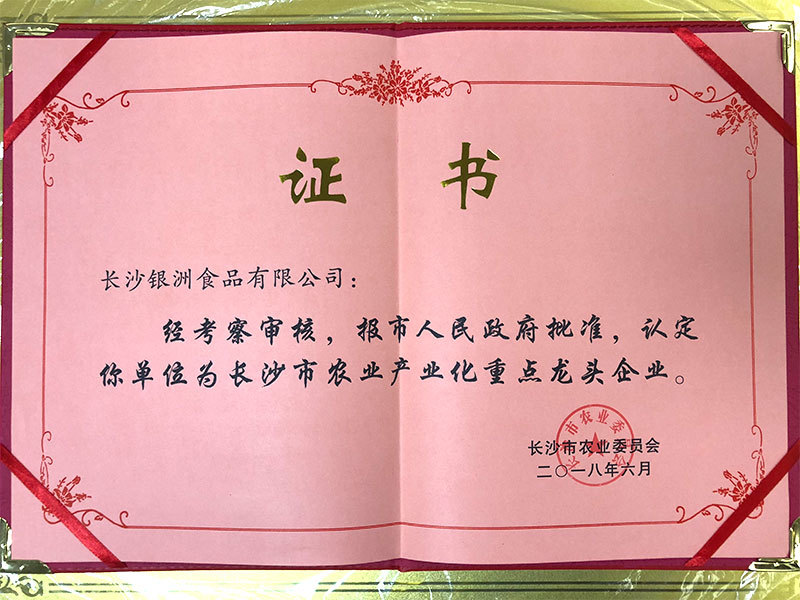 证书
长沙银洲食品有限公司：
经考察审核，报市人民政府批准，认定
你单位为长沙市农业产业化重点龙头企业。
长沙市农业委员会
二〇一八年六月